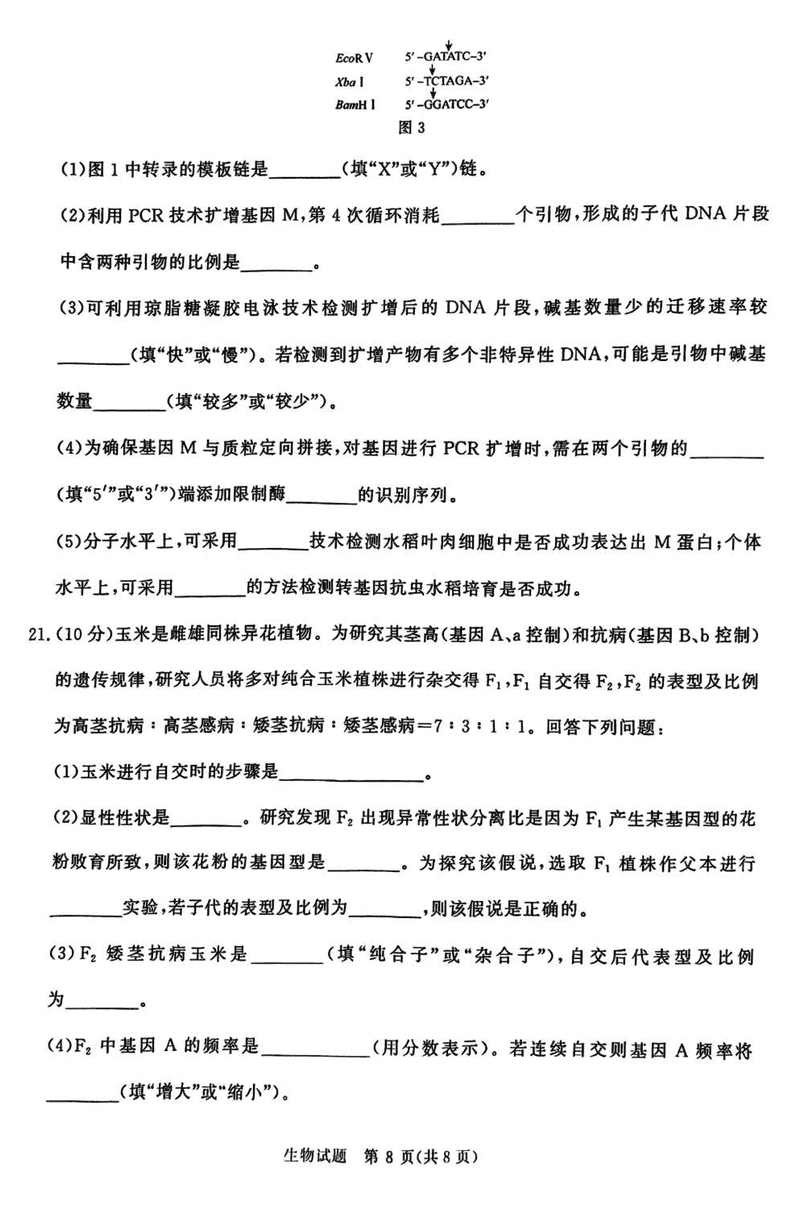 EcoR V 5′-GATATC-3′
Xba Ⅰ 5′-TCTAGA-3′
BamH Ⅰ 5′-GGATCC-3′
图 3
(1)图 1 中转录的模板链是________(填“X”或“Y”)链。
(2)利用 PCR 技术扩增基因 M,第 4 次循环消耗________个引物,形成的子代 DNA 片段
中含两种引物的比例是________。
(3)可利用琼脂糖凝胶电泳技术检测扩增后的 DNA 片段,碱基数量少的迁移速率较
________(填“快”或“慢”)。若检测到扩增产物有多个非特异性 DNA,可能是引物中碱基
数量________(填“较多”或“较少”)。
(4)为确保基因 M 与质粒定向拼接,对基因进行 PCR 扩增时,需在两个引物的________
(填“5′”或“3′”)端添加限制酶________的识别序列。
(5)分子水平上,可采用________技术检测水稻叶肉细胞中是否成功表达出 M 蛋白;个体
水平上,可采用________的方法检测转基因抗虫水稻培育是否成功。
21.(10 分)玉米是雌雄同株异花植物。为研究其茎高(基因 A、a 控制)和抗病(基因 B、b 控制)
的遗传规律,研究人员将多对纯合玉米植株进行杂交得 F₁,F₁ 自交得 F₂,F₂ 的表型及比例
为高茎抗病∶高茎感病∶矮茎抗病∶矮茎感病=7∶3∶1∶1。回答下列问题:
(1)玉米进行自交时的步骤是________________。
(2)显性性状是________。研究发现 F₂ 出现异常性状分离比是因为 F₁ 产生某基因型的花
粉败育所致,则该花粉的基因型是________。为探究该假说,选取 F₁ 植株作父本进行
________实验,若子代的表型及比例为________,则该假说是正确的。
(3)F₂ 矮茎抗病玉米是________(填“纯合子”或“杂合子”),自交后代表型及比例
为________。
(4)F₂ 中基因 A 的频率是____________(用分数表示)。若连续自交则基因 A 频率将
________(填“增大”或“缩小”)。
生物试题 第 8 页(共 8 页)